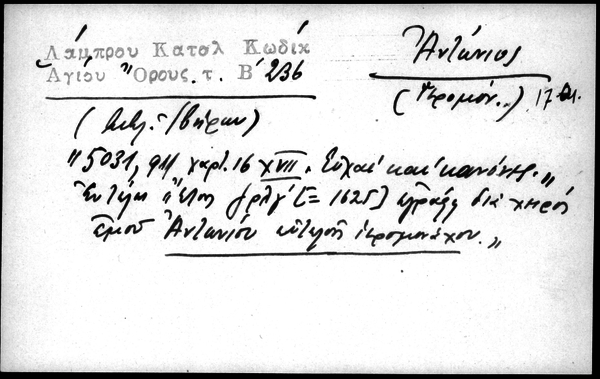 Λάμπρου Κατολ Κωδίκ
Ἁγίου Ὄρους. τ. Β΄ 236
Ἀντώνιος
(Ἱερομόν..) 17 αι.
(Ἰβήρων)
"5031, 911 χαρτ. 16 XVII. Εὐχαὶ καὶ κανόνες."
Ἐν τέλει "Ἔτος ζρλγ' [= 1625] ἐγράφη διὰ χειρός
ἐμοῦ Ἀντωνίου ἱερομονάχου."